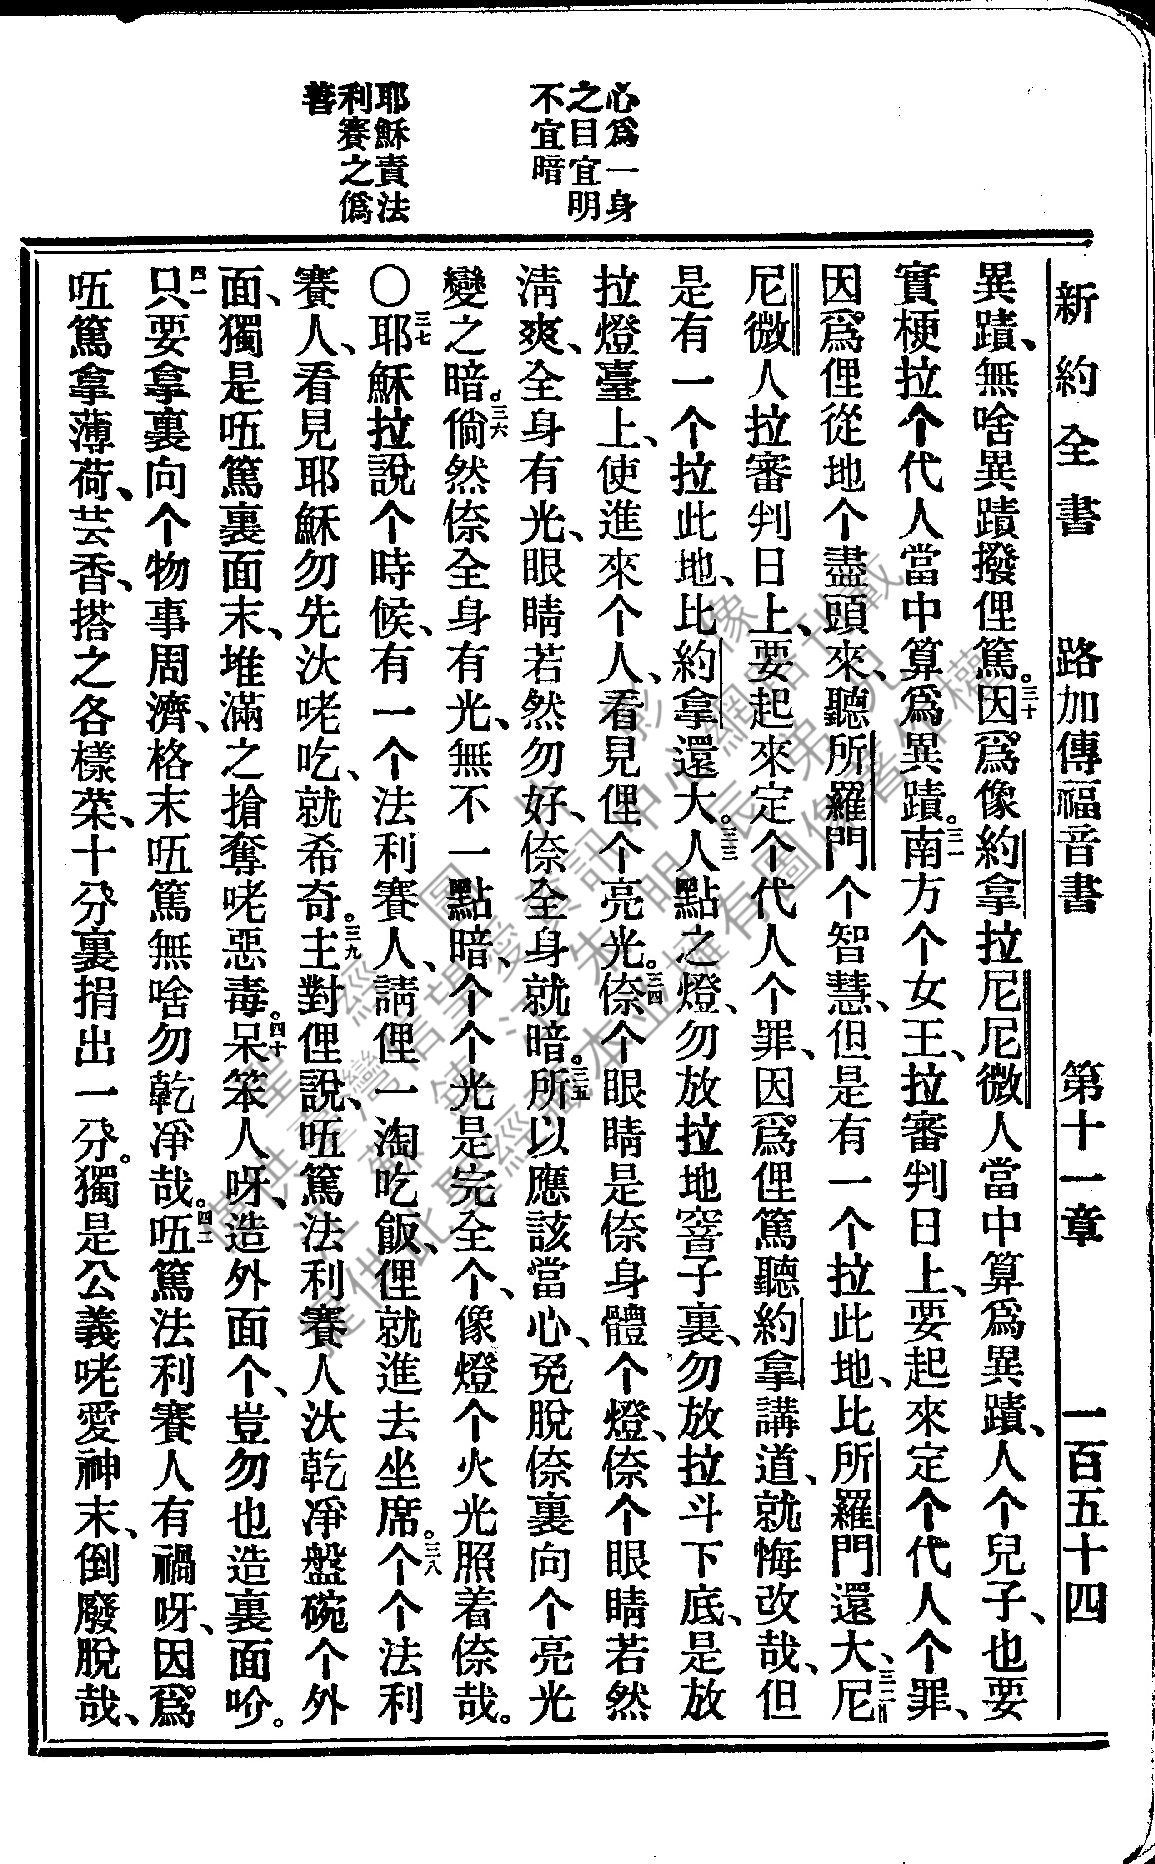 新約全書 路加傳福音書 第十一章 一百五十四
異蹟、無啥異蹟撥俚篤。三十因爲像約拿拉尼尼微人當中算爲異蹟、人个兒子、也要
實梗拉个代人當中算爲異蹟。三一南方个女王、拉審判日上、要起來定个代人个罪、
因爲俚從地个盡頭來、聽所羅門个智慧、但是有一个拉此地、比所羅門還大、三二尼
尼微人拉審判日上、要起來定个代人个罪、因爲俚篤聽約拿講道、就悔改哉、但
是有一个拉此地、比約拿還大。三三人點之燈、勿放拉地窨子裏、勿放拉斗下底、是放
拉燈臺上、使進來个人、看見俚个亮光。三四倷个眼睛是倷身體个燈、倷个眼睛若然
淸爽、全身有光、眼睛若然勿好、倷全身就暗。三五所以應該當心、免脫倷裏向个亮光
變之暗。三六倘然倷全身有光、無不一點暗、个个光是完全个、像燈个火光照着倷哉。
〇三七耶穌拉說个時候、有一个法利賽人、請俚一淘吃飯、俚就進去坐席。三八个个法利
賽人、看見耶穌勿先汏咾吃、就希奇。三九主對俚說、㕶篤法利賽人汏乾凈盤碗个外
面、獨是㕶篤裏面末、堆滿之搶奪咾惡毒。四十呆笨人呀、造外面个、豈勿也造裏面吤。
四一只要拿裏向个物事周濟、格末㕶篤無啥勿乾凈哉。四二㕶篤法利賽人有禍呀、因爲
㕶篤拿薄荷、芸香、搭之各樣菜、十分裏捐出一分。獨是公義咾愛神末、倒廢脫哉、
心爲一身
之目宜明
不宜暗
耶穌責法
利賽之僞
善